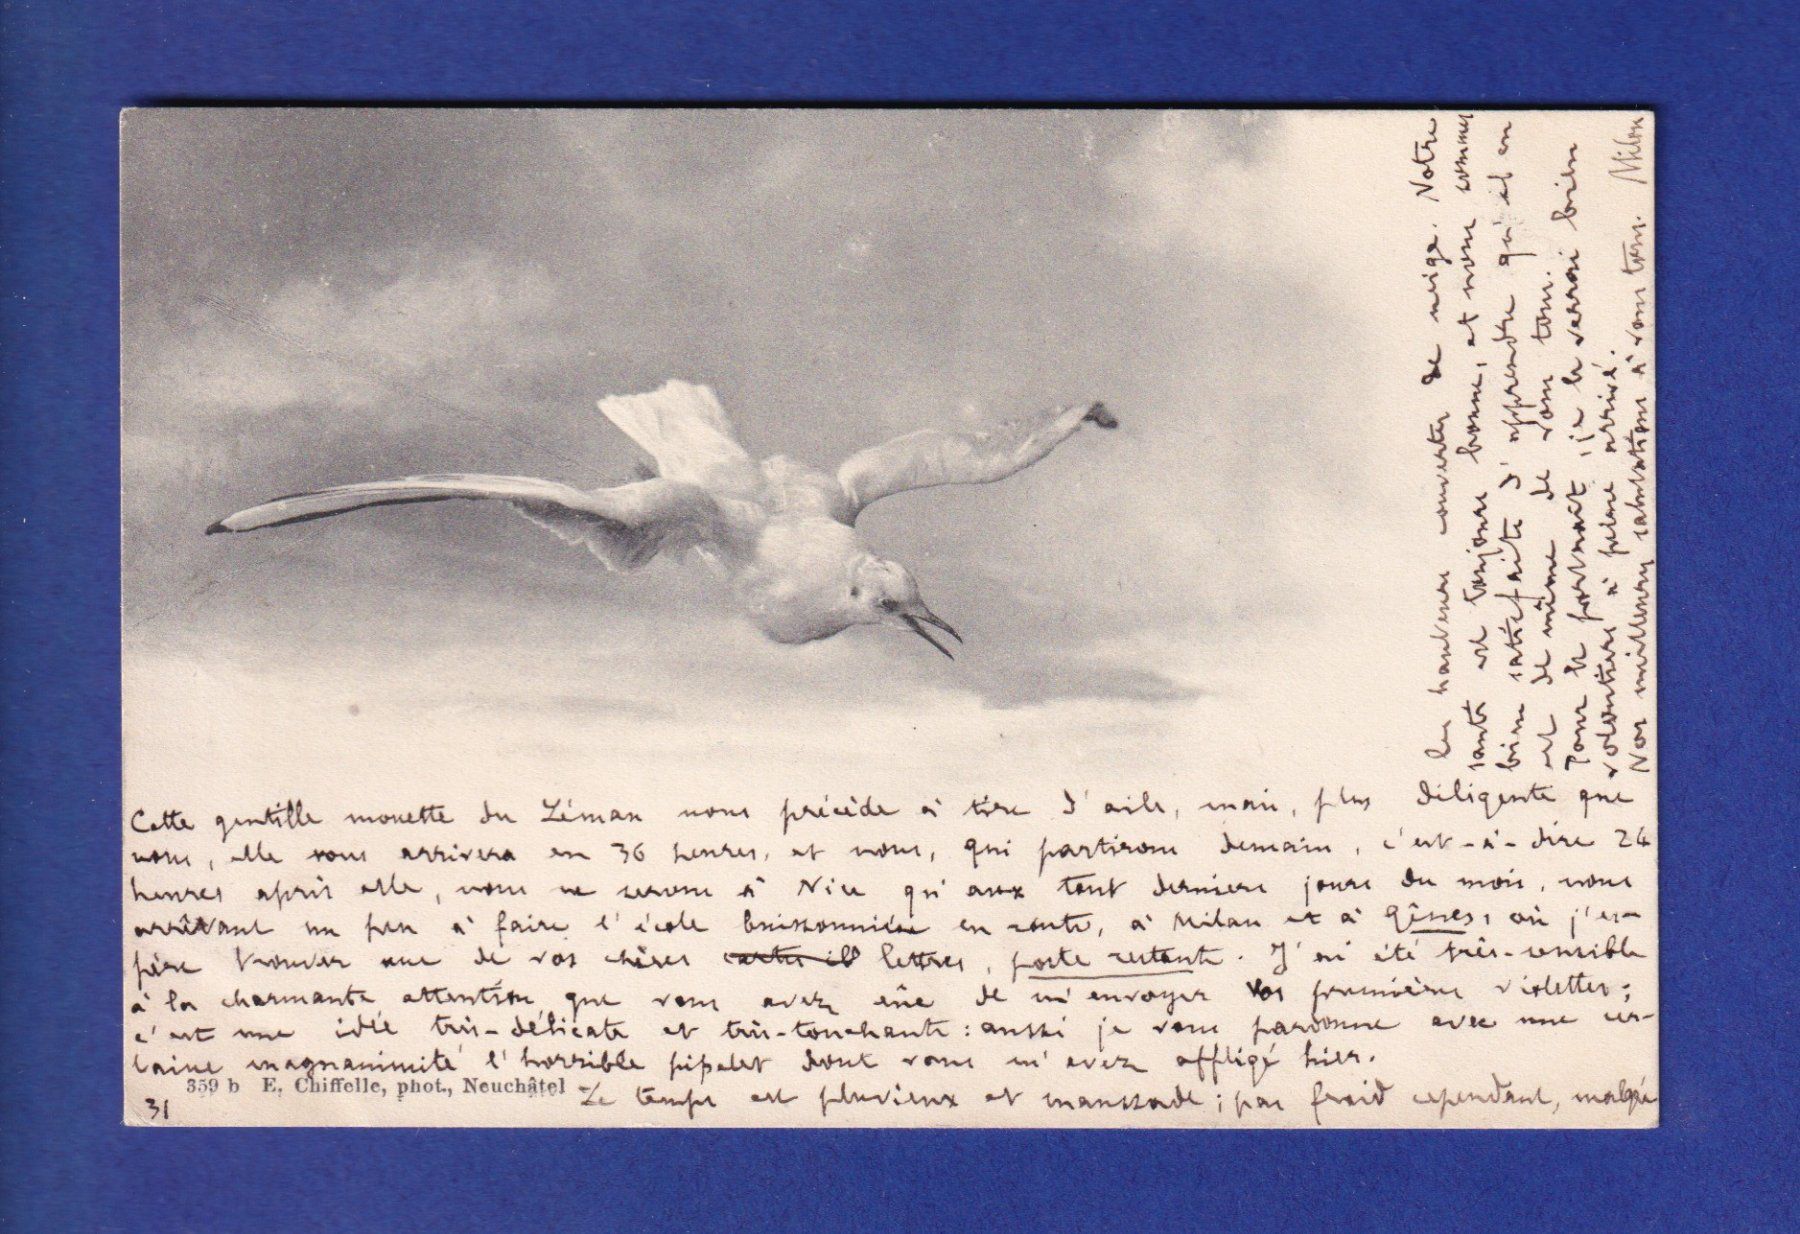 Cette gentille mouette du Léman nous précède à tire d'aile, mais, plus diligente que
nous, elle vous arrivera en 36 heures, et nous, qui partirons demain, c'est-à-dire 24
heures après elle, nous ne serons à Nice qu'aux tout derniers jours du mois, nous
arrêtant un peu à faire l'école buissonnière en route, à Milan et à Gênes, où j'es-
père trouver une de vos chères cartes lettres, poste restante. J'ai été très-sensible
à la charmante attention que vous avez eûe de m'envoyer vos premières violettes;
c'est une idée très-délicate et très-touchante: aussi je vous pardonne avec une cer-
taine magnanimité l'horrible pipelet dont vous m'avez affligé hier.
Le temps est pluvieux et maussade; pas froid cependant, malgré
les hauteurs couvertes de neige. Notre
santé est toujours bonne, et nous sommes
bien satisfaits d'apprendre qu'il en
est de même de vous tous.
Pour le portrait, je le verrai bien
volontiers à peine arrivé.
Nos meilleures salutations à vous tous. Milon
359 b E. Chiffelle, phot., Neuchâtel
31